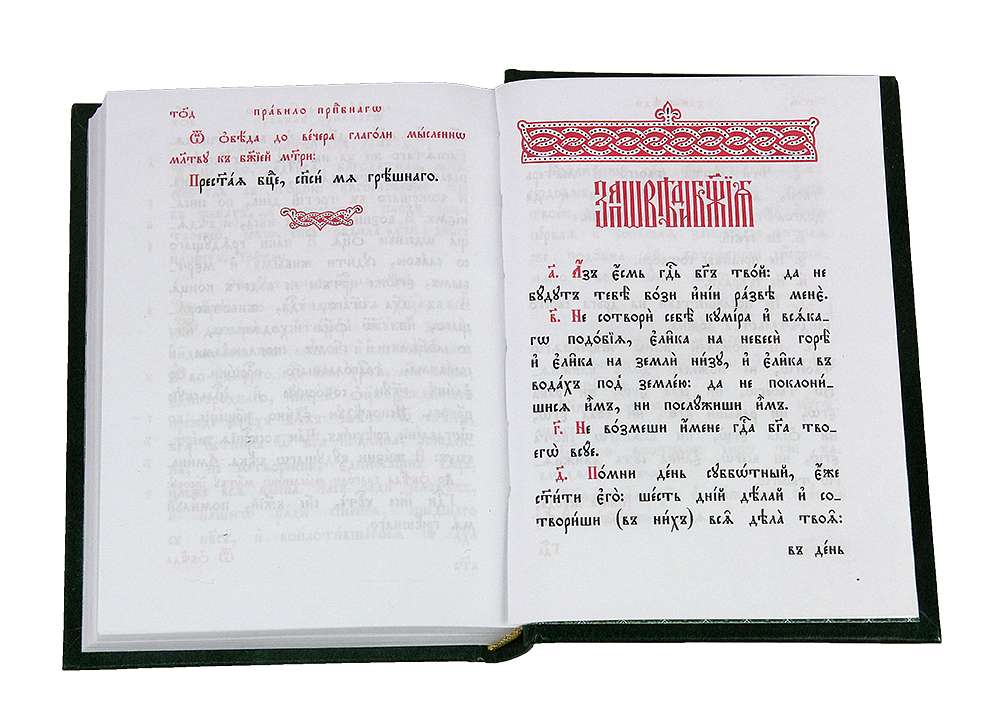 то҃д
пра́вило прпⷣбнагѡ
Ѿ ѻбѣ́да до ве́чера глаго́ли мы́сленнѡ
мл҃тву къ бж҃їей мт҃ри:
Прест҃а́ѧ бц҃е, сп҃си́ мѧ грѣ́шнаго.
за́пѡвѣди бж҃їѧ
а҃. А҆́зъ є҆́смь гдⷭ҇ь бг҃ъ тво́й: да не
бꙋ́дꙋтъ тебѣ̀ бо́зи и҆ні́и ра́звѣ менє̀.
в҃. Не сотворѝ себѣ̀ кꙋмі́ра и҆ всѧ́ка-
гѡ подо́бїѧ, є҆ли́ка на небесѝ горѣ̀
и҆ є҆ли́ка на землѝ ни́зꙋ, и҆ є҆ли́ка въ
вода́хъ под̾ земле́ю: да не поклони́-
шисѧ и҆̀мъ, ни послꙋ́жиши и҆̀мъ.
г҃. Не во́змеши и҆́мене гдⷭ҇а бг҃а тво-
егѡ̀ всꙋе.
д҃. По́мни де́нь сꙋббѡ́тный, є҆́же
ст҃и́ти є҆го̀: ше́сть дні́й дѣ́лай и҆ со-
твори́ши (въ ни́хъ) всѧ̑ дѣла̀ твоѧ̑:
въ де́нь